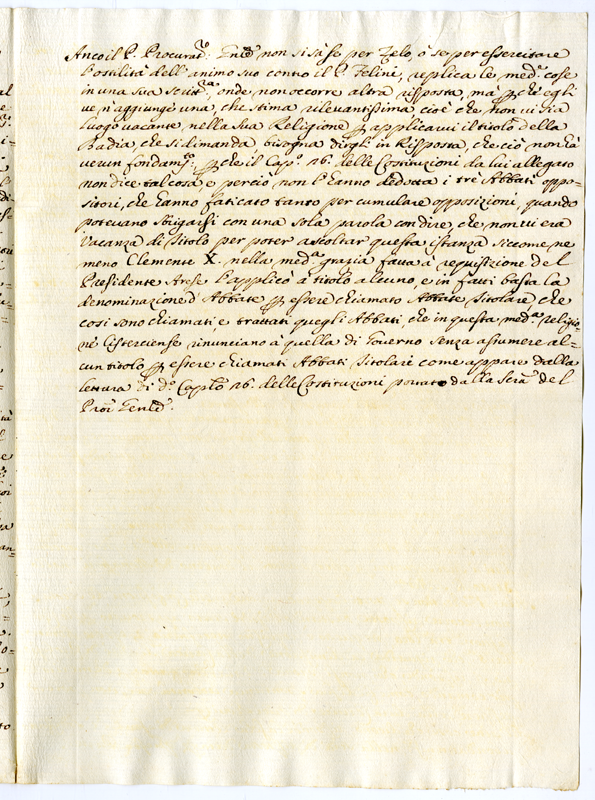 Anco il P. Procurat.r Gnle non si sà se per Zelo, ò se per essercitare
l'ostilità dell'animo suo contro il P. Felini, replica le med.e cose
in una sua Scritt.a, onde non occorre altra risposta, mà p che egli
ve n'aggiunge una, che stima rilevantissima cioè che non vi sia
luogo vacante nella sua Religione p applicarvi il titolo della
Badia, che si dimanda, bisogna dirgli in Risposta, che ciò non hà
verun fondam.to; p che il Cap.o 26. delle Costituzioni da lui allegato
non dice tal cosa, e perciò non l'hanno dedotta i trè Abbati oppo-
sitori, che hanno faticato tanto per cumulare opposizioni, quando
potevano sbrigarsi con una sola parola con dire, che non vi era
Vacanza di Titolo per poter ascoltar questa istanza siccome ne
meno Clemente X. nella med.a grazia fatta à requisizione del
Presidente Arese l'applicò à titolo alcuno, e in fatti basta la
denominazione d'Abbate p essere chiamato Abbate Titolare che
cosi sono chiamati e trattati quegli Abbati, che in questa med.a religio
ne Cisterciense rinunciano à quella di Governo senza assumere al-
cun titolo p essere chiamati Abbati Titolari come appare dalla
lettura di d.o Caplo 26. delle Costituzioni portato dalla del
Pror Gnle.